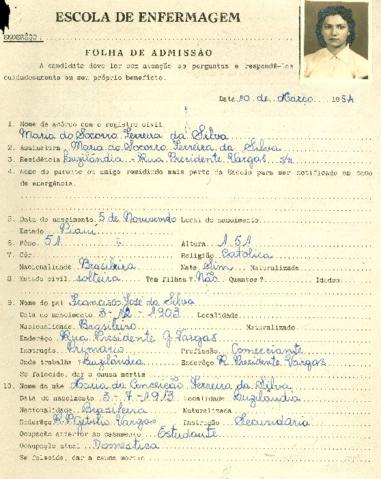 ESCOLA DE ENFERMAGEM
ENDEREÇO:
FOLHA DE ADMISSÃO
A candidata deve ler com atenção as perguntas e respondê-las
cuidadosamente em seu próprio benefício.
Data 20 de Março 1954
1. Nome de acôrdo com o registro civil.
Maria do Socorro Ferreira da Silva
2. Assinatura Maria do Socorro Ferreira da Silva
3. Residência Luzilândia - Rua Presidente Vargas s/n
4. Nome do parente ou amigo residindo mais perto da Escola para ser notificado em caso
de emergência.
5. Data do nascimento 5 de Novembro Local do nascimento
Estado Piauí
6. Pêso: 51 Altura 1.51
7. Côr Religião Católica
Nacionalidade Brasileira Nata Sim Naturalizada
8. Estado civil solteira Tem filhos? Não Quantos? Idades
9. Nome do pai Francisco José da Silva
Data do nascimento 3-12-1903 Localidade
Nacionalidade Brasileiro Naturalizado
Endereço Rua Presidente G. Vargas
Instrução Primário Profissão Comerciante
Onde trabalha? Luzilândia Endereço R. Presidente Vargas
Se falecido, dar a causa mortis
10. Nome da mãe Maria da Conceição Ferreira da Silva
Data do nascimento 3-7-1913 Localidade Luzilândia
Nacionalidade Brasileira Naturalizada
Endereço R. P. Getúlio Vargas Instrução Secundária
Ocupação anterior ao casamento Estudante
Ocupação atual Doméstica
Se falecida, dar a causa mortis